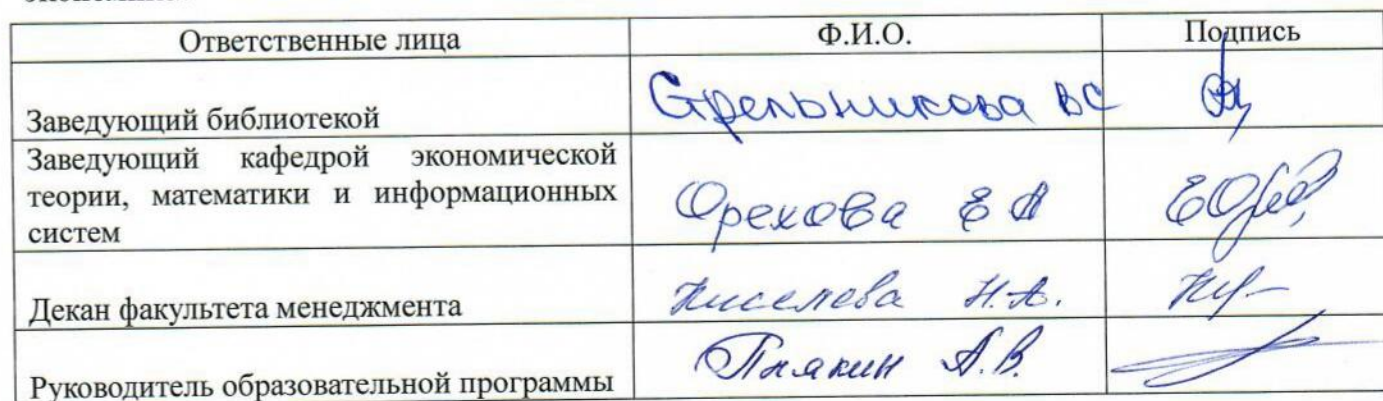 Ответственные лица Ф.И.О. Подпись
Заведующий библиотекой Стрельникова ВС
Заведующий кафедрой экономической
теории, математики и информационных
систем Орехова Е А
Декан факультета менеджмента Киселева Н.А.
Руководитель образовательной программы А.В.